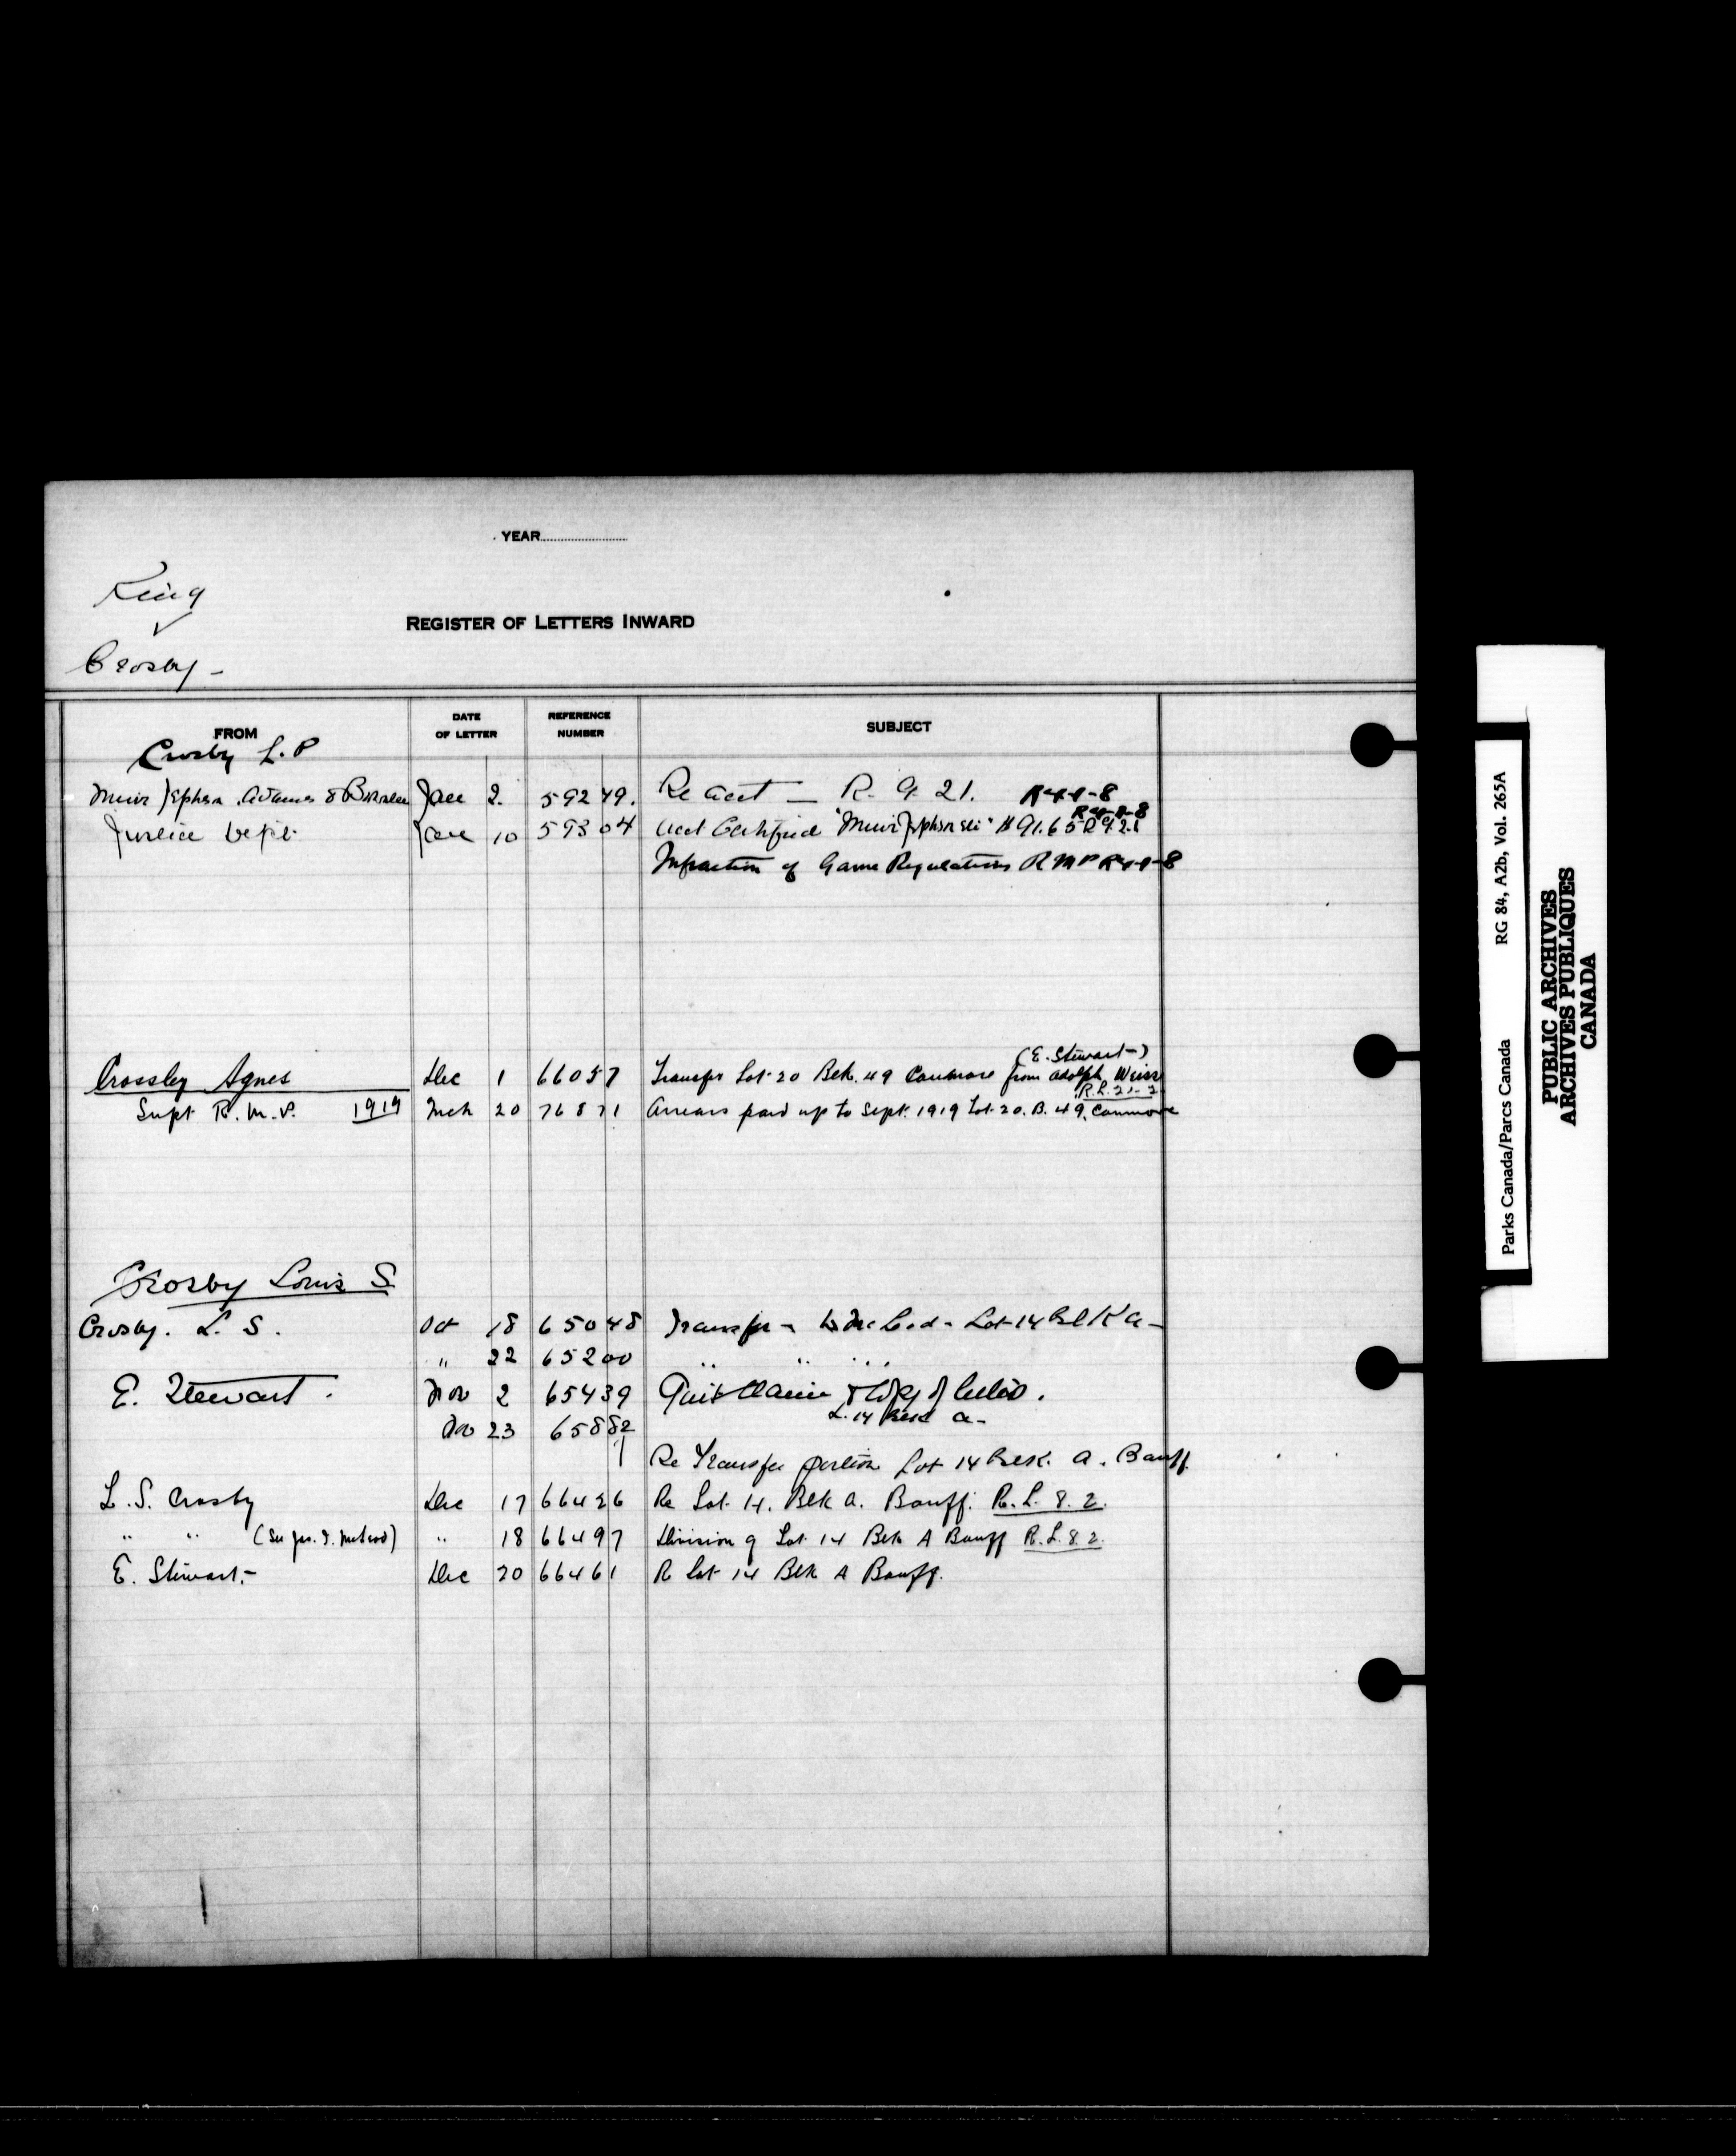 YEAR
King
v
Crosby -
REGISTER OF LETTERS INWARD
FROM
DATE OF LETTER
REFERENCE NUMBER
SUBJECT
Crosby L. P
Muir Jephson Adams & Jan 2. 59249. Re acct — R. G. 21. R-4-1-8
Justice Dept. Jan 10 59304 acct Certified "Muir Jephson " $91.65 R 9.2.1 R4-1-8
Infraction of Game Regulations R M P R4-1-8
(E. Stewart-)
Crossley Agnes Dec 1 66057 Transfer Lot 20 Blk. 49 Canmore from Adolph Weiss
R.L. 21-2
Supt R. M. P. 1919 Mch 20 76871 Arrears paid up to Sept. 1919 Lot 20. B. 49. Canmore
Crosby Louis S
Crosby. L. S. Oct 18 65048 Transfer - Lot 14 Blk A -
" 22 65200 " " "
E. Stewart. Nov 2 65439 Quit Claim & Copy of .
L. 14 Blk A -
Nov 23 65882
Re Transfer portion Lot 14 Blk. A. Banff
L. S. Crosby Dec 17 66426 Re Lot 14. Blk A. Banff. R. L. 8. 2.
" " (See Jas. I. McLeod) " 18 66497 Division of Lot 14 Blk A Banff R. L. 8. 2.
E. Stewart.- Dec 20 66461 R Lot 14 Blk A Banff.
Parks Canada/Parcs Canada RG 84, A2b, Vol. 265A
PUBLIC ARCHIVES
ARCHIVES PUBLIQUES
CANADA